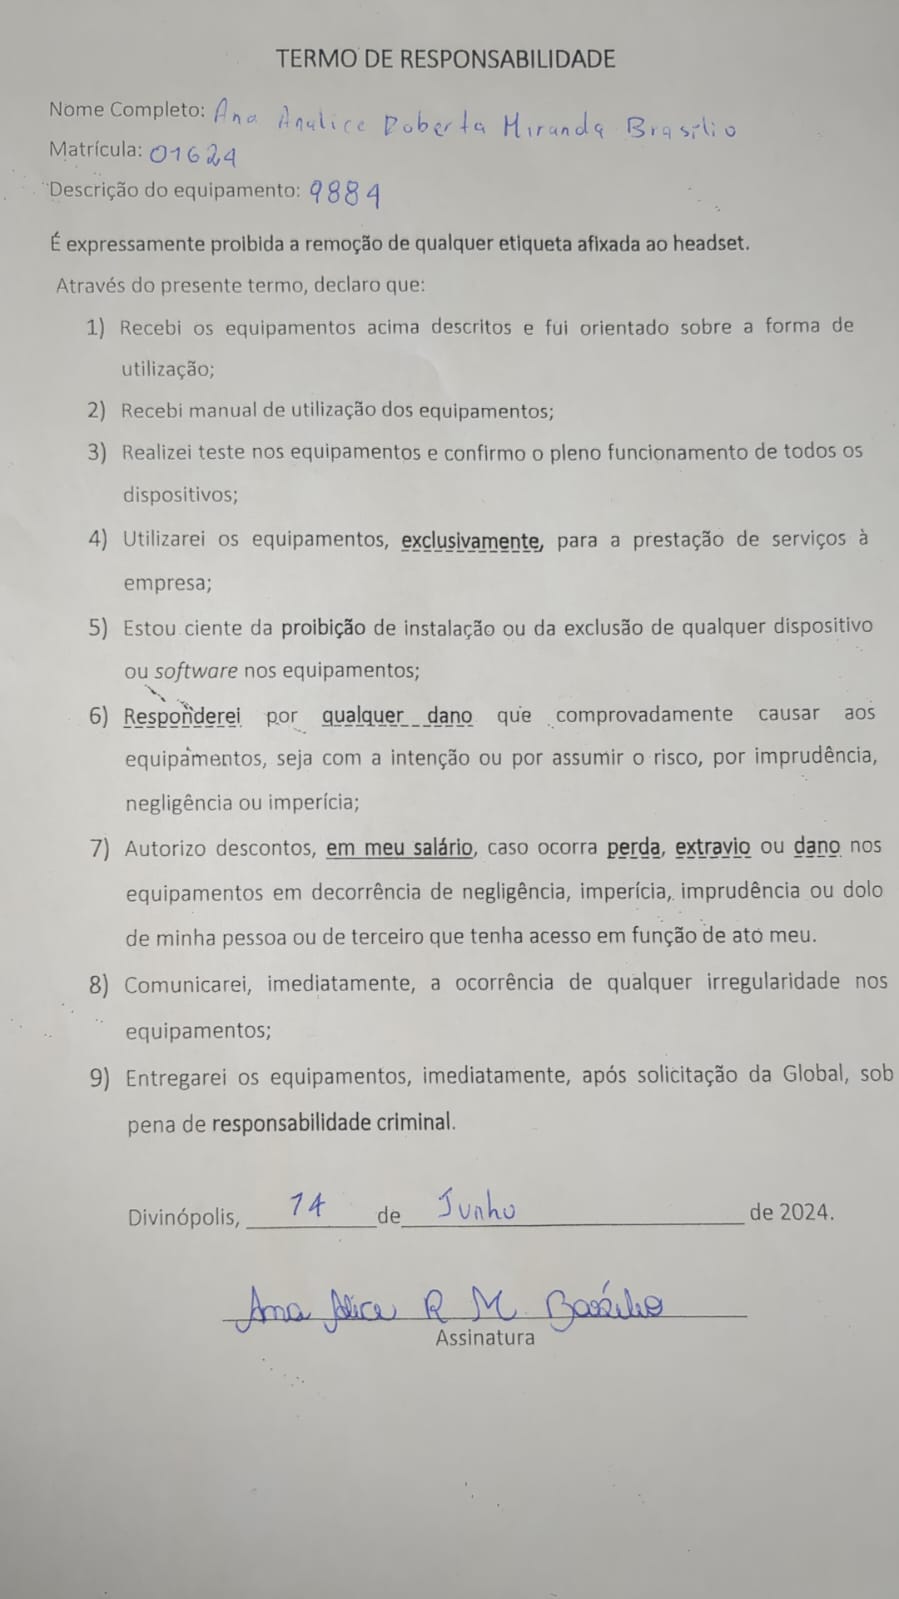 TERMO DE RESPONSABILIDADE
Nome Completo: Ana Analice Roberta Miranda Brasílio
Matrícula: 01624
Descrição do equipamento: 9884
É expressamente proibida a remoção de qualquer etiqueta afixada ao headset.
Através do presente termo, declaro que:
1) Recebi os equipamentos acima descritos e fui orientado sobre a forma de
utilização;
2) Recebi manual de utilização dos equipamentos;
3) Realizei teste nos equipamentos e confirmo o pleno funcionamento de todos os
dispositivos;
4) Utilizarei os equipamentos, exclusivamente, para a prestação de serviços à
empresa;
5) Estou ciente da proibição de instalação ou da exclusão de qualquer dispositivo
ou software nos equipamentos;
6) Responderei por qualquer dano que comprovadamente causar aos
equipamentos, seja com a intenção ou por assumir o risco, por imprudência,
negligência ou imperícia;
7) Autorizo descontos, em meu salário, caso ocorra perda, extravio ou dano nos
equipamentos em decorrência de negligência, imperícia, imprudência ou dolo
de minha pessoa ou de terceiro que tenha acesso em função de ato meu.
8) Comunicarei, imediatamente, a ocorrência de qualquer irregularidade nos
equipamentos;
9) Entregarei os equipamentos, imediatamente, após solicitação da Global, sob
pena de responsabilidade criminal.
Divinópolis, 14 de Junho de 2024.
Ana Alice R M Brasílio
Assinatura